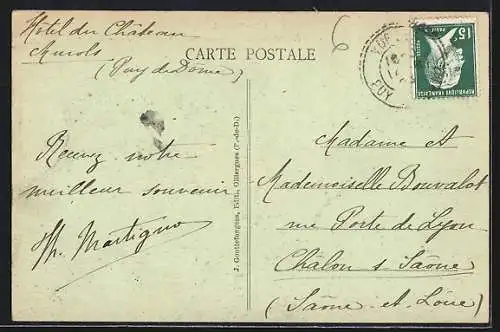 Hôtel du Château
Murols
(Puy de Dôme)
CARTE POSTALE
6
15
POSTES
REPUBLIQUE FRANÇAISE
PUY
Recevez notre
meilleur souvenir
Martignon
J. Gontiefongies, Edit., Olliergues (P.-de-D.)
Madame et
Mademoiselle Bouvalot
rue Porte de Lyon
Châlon s. Saône
(Saône-et-Loire)